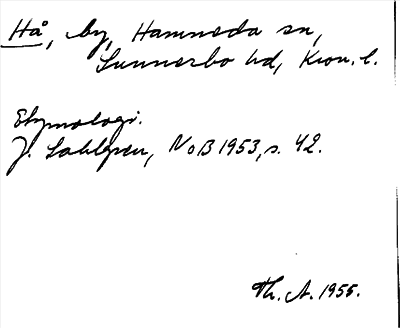 Hå, by, Hamneda sn,
Sunnerbo hd, Kron. l.
Etymologi.
J. Sahlgren, NoB 1953, s. 42.
Th. A. 1955.